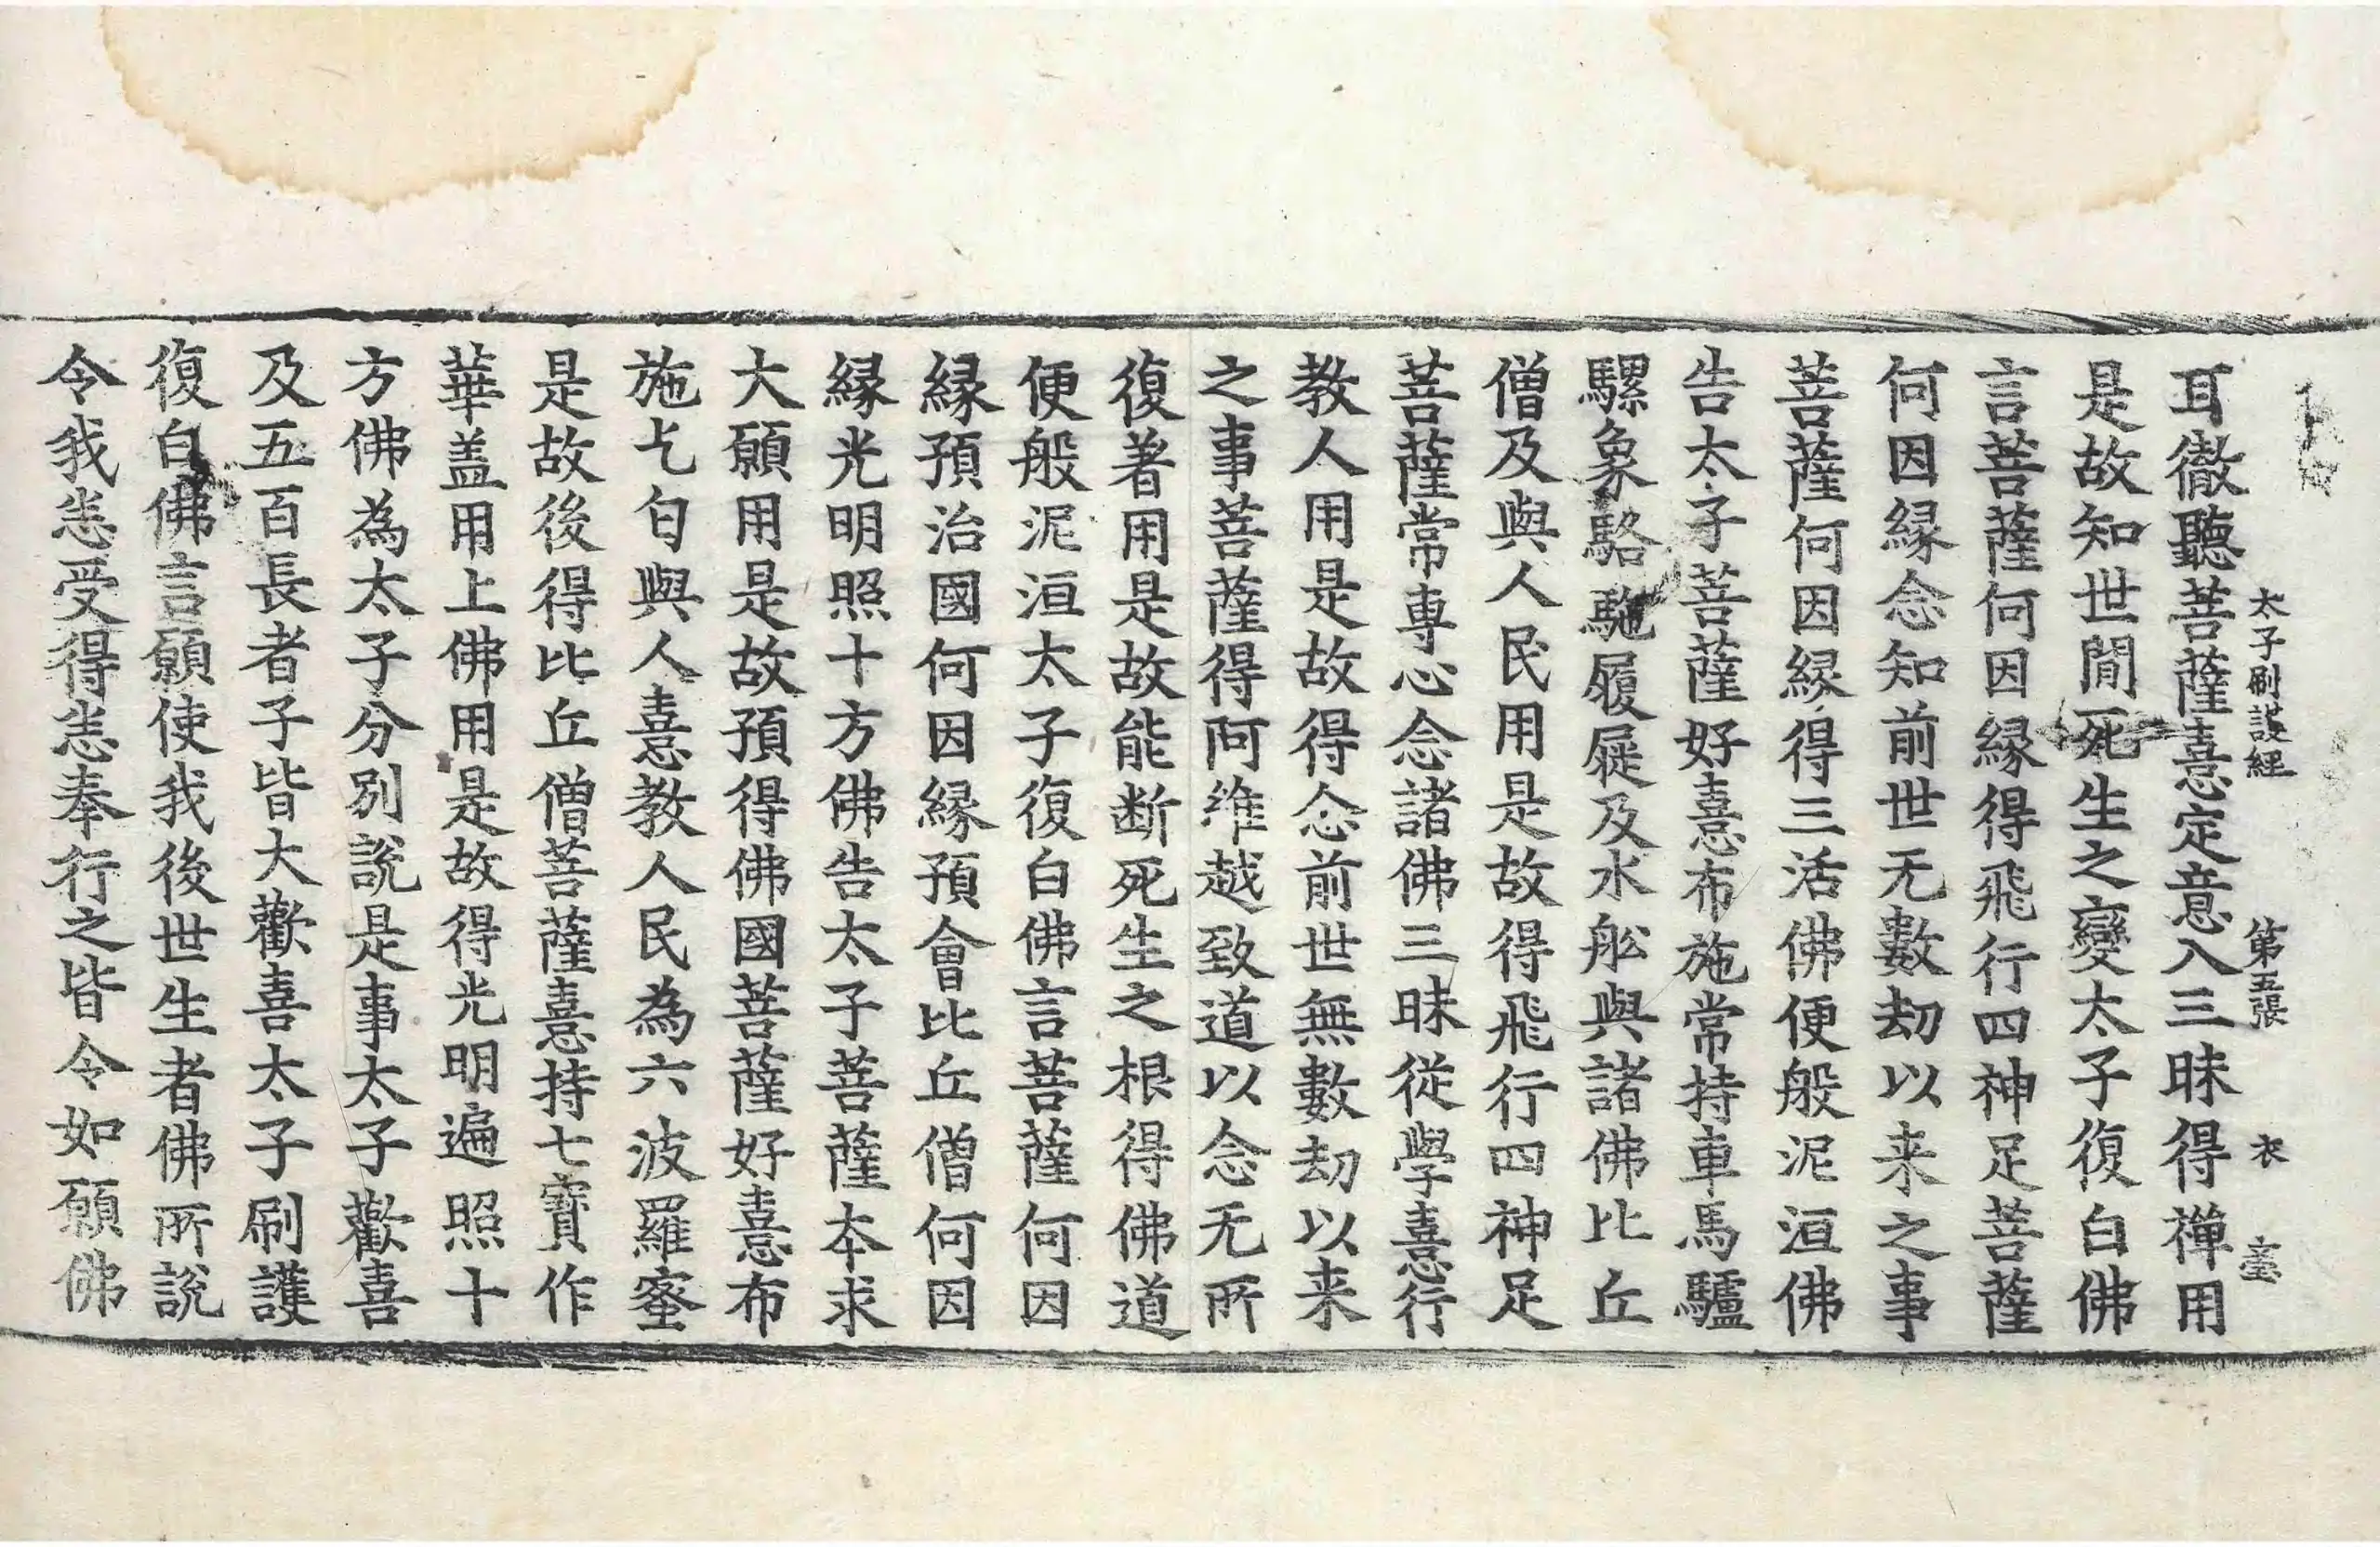 太子刷護經 第五張 衣
耳徹聽菩薩憙定意入三昧得禪用
是故知世閒死生之變太子復白佛
言菩薩何因緣得飛行四神足菩薩
何因緣念知前世无數劫以来之事
菩薩何因緣得三活佛便般泥洹佛
告太子菩薩好憙布施常持車馬驢
騾象駱駞履屣及水舩與諸佛比丘
僧及與人民用是故得飛行四神足
菩薩常專心念諸佛三昧從學憙行
教人用是故得念前世無數劫以来
之事菩薩得阿維越致道以念无所
復著用是故能断死生之根得佛道
便般泥洹太子復白佛言菩薩何因
緣預治國何因緣預會比丘僧何因
緣光明照十方佛告太子菩薩夲求
大願用是故預得佛國菩薩好憙布
施乞匄與人憙教人民為六波羅蜜
是故後得比丘僧菩薩憙持七寶作
華盖用上佛用是故得光明遍照十
方佛為太子分別說是事太子歡喜
及五百長者子皆大歡喜太子刷護
復白佛言願使我後世生者佛所說
令我恙受得恙奉行之皆令如願佛